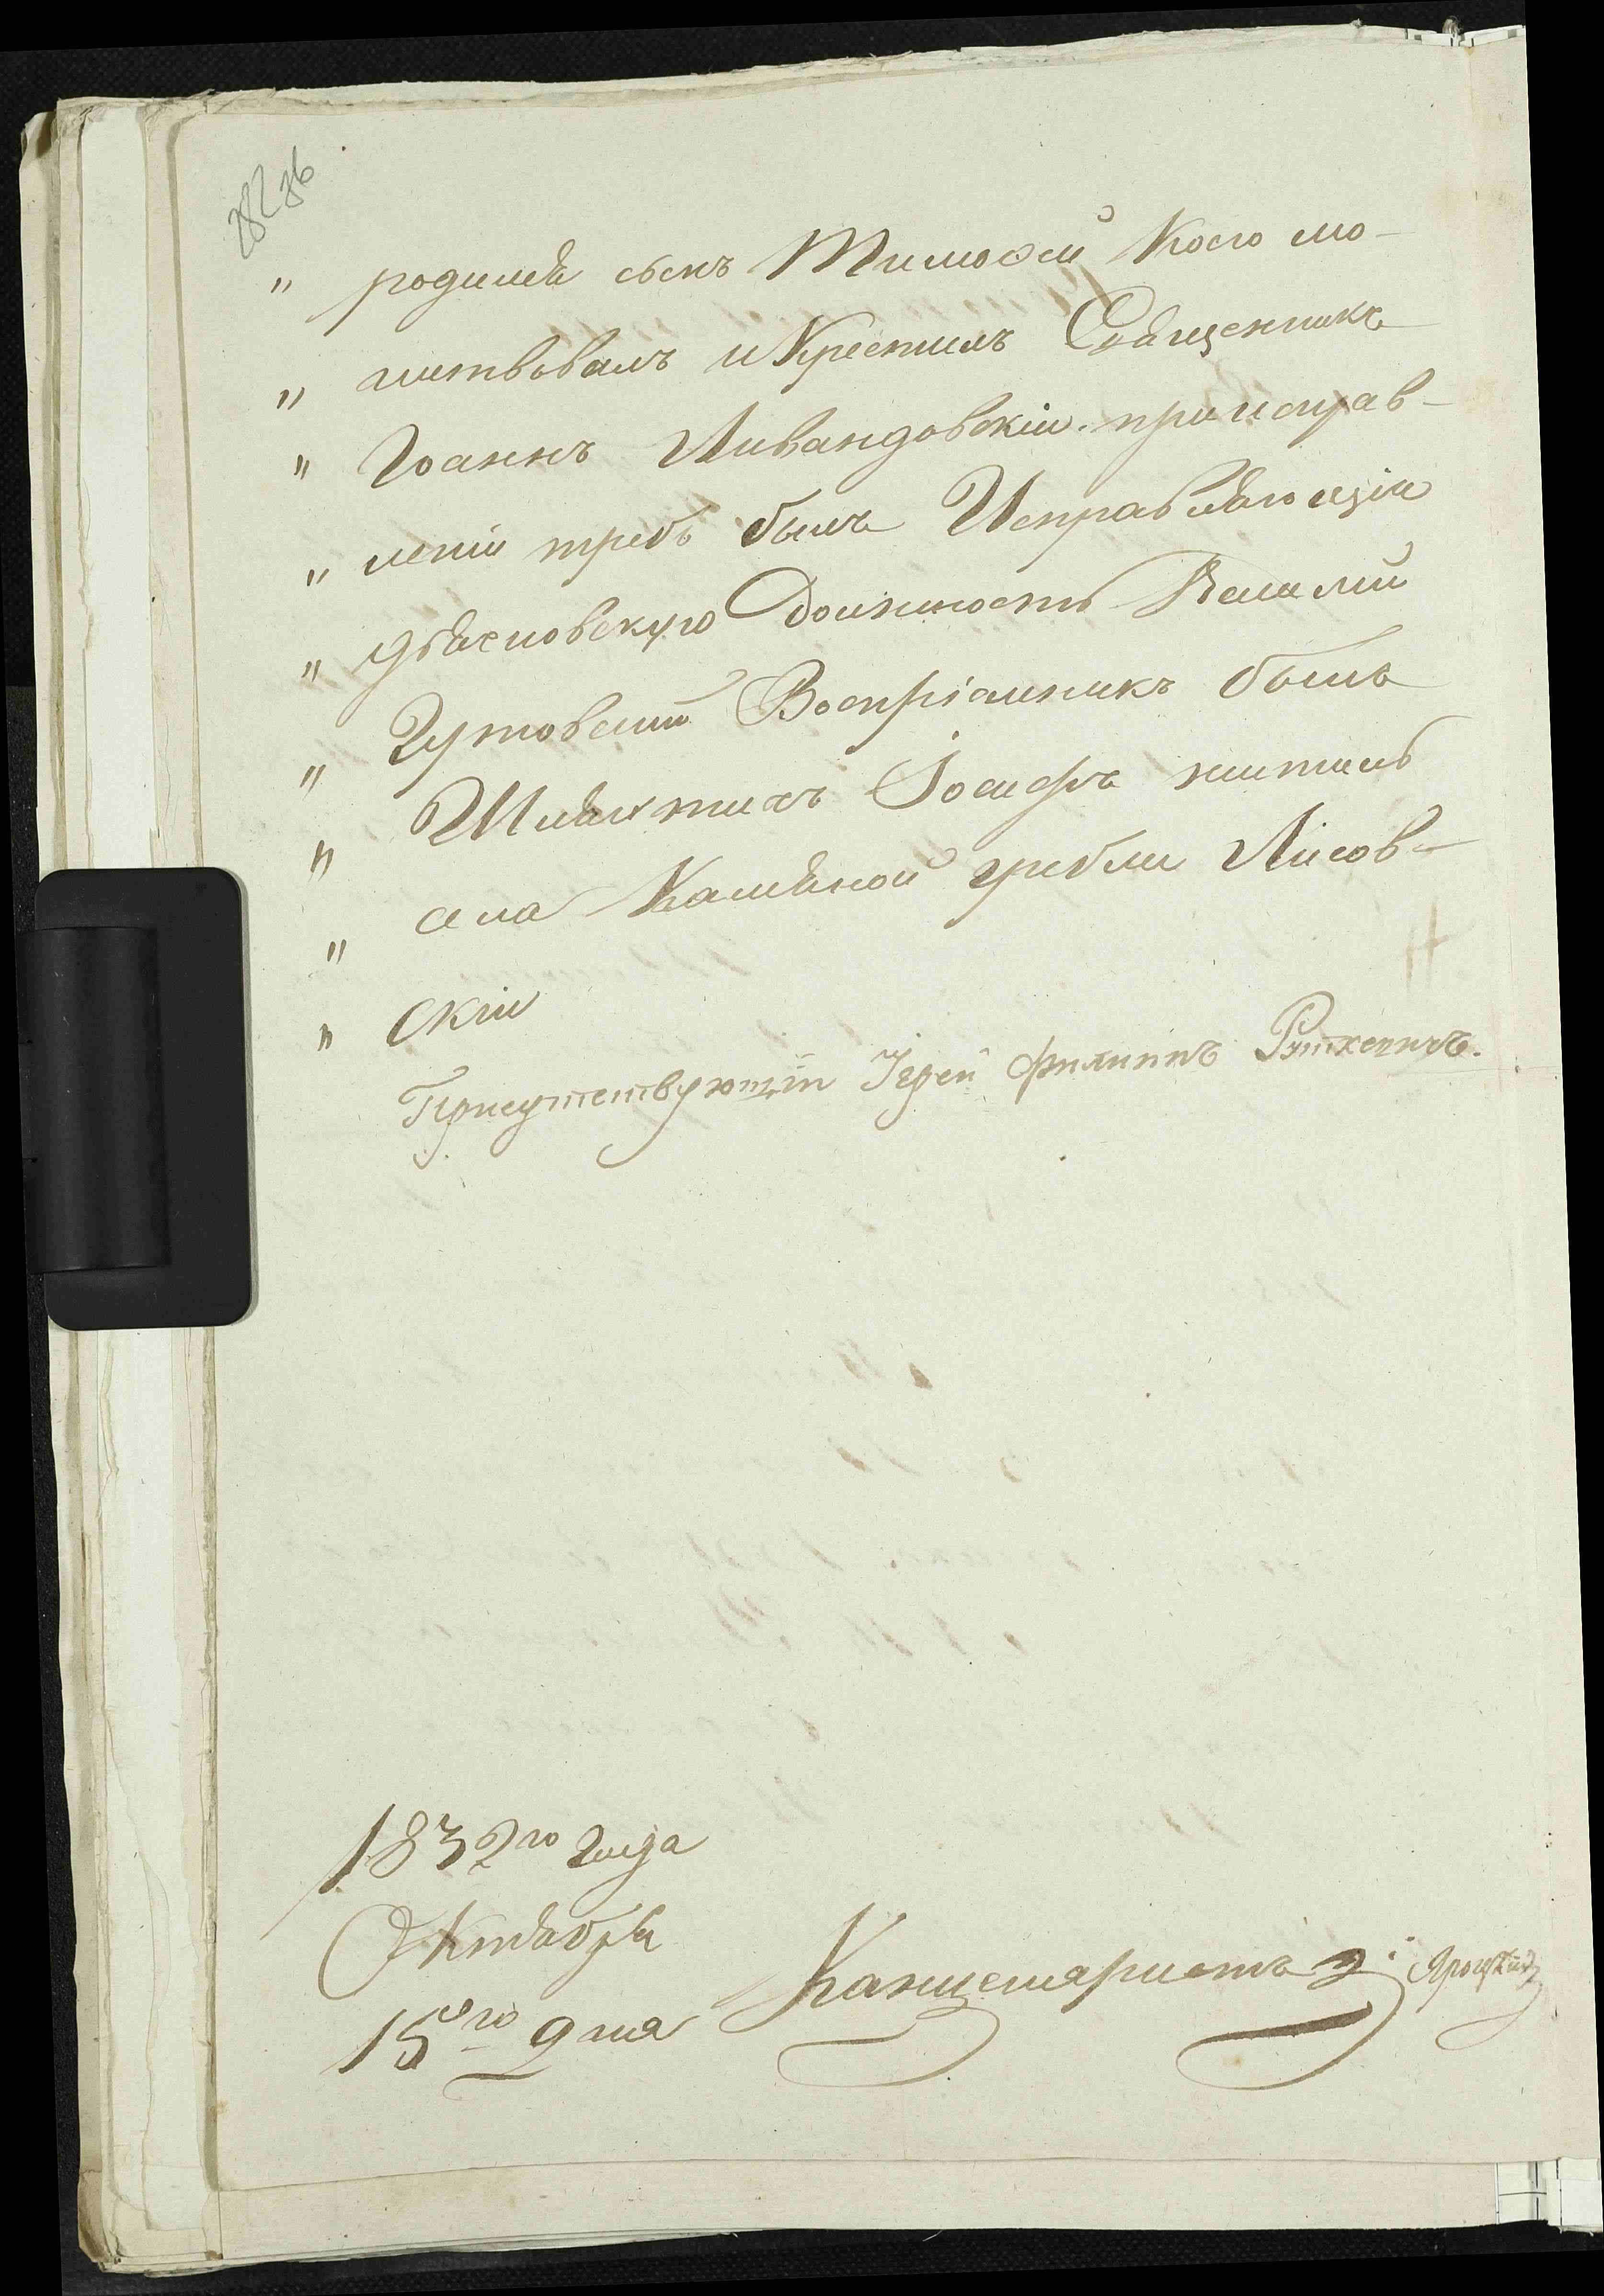 " родился сынъ Тимофей Коего мо-
" литвовалъ и Крестилъ Священникъ
" Іоаннъ Ливандовскій. при исправ-
" леніи требъ былъ Исправляющій
" дьячковскую должность Василій
" Гутовскій Воспріемникъ былъ
" Шляхтичъ Іосифъ житель
" села Камяной гребли Лисов-
" скій
Присутствующій Іерей Филиппъ Руткевичъ.
1832го года
Октября
15го дня
Канцеляристъ Яроцкій